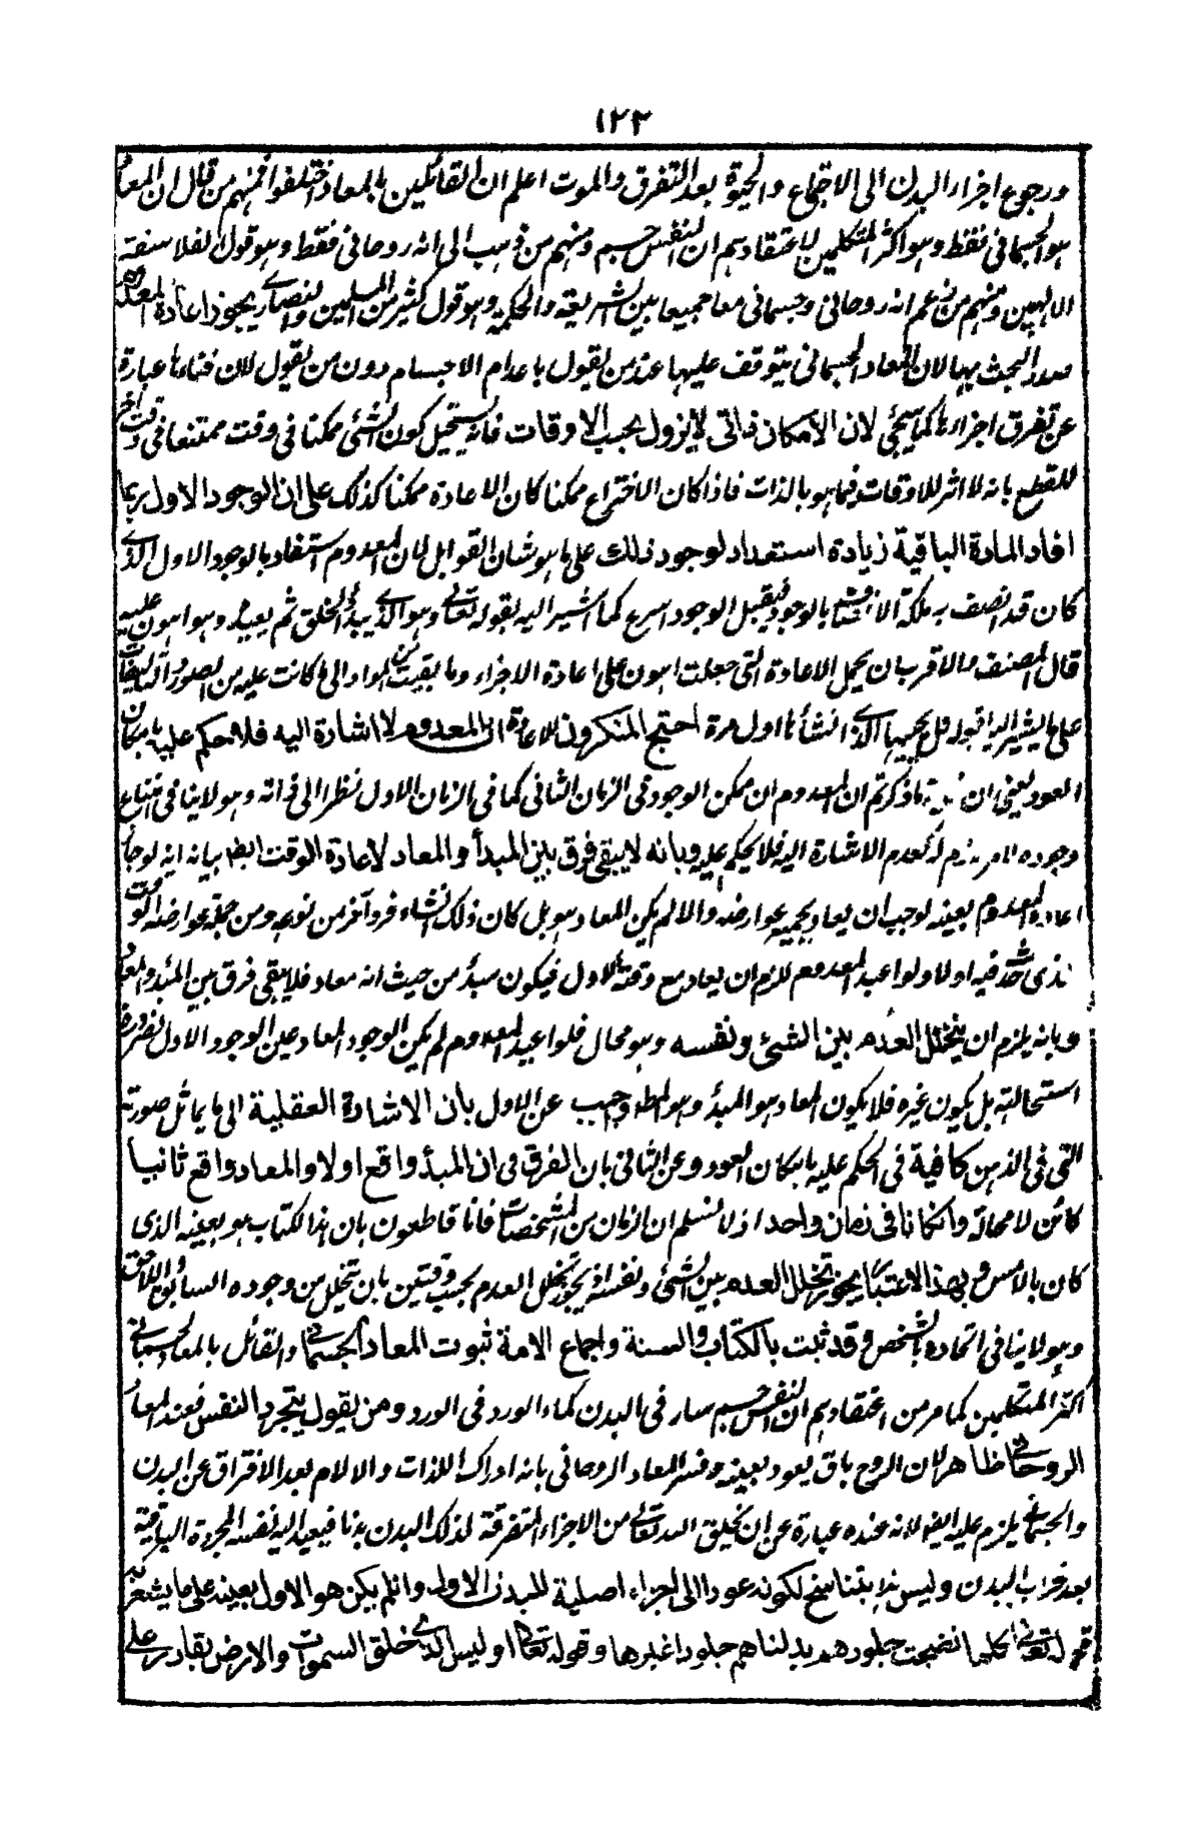 ١٢٣
ورجوع اجزاء البدن الى الاجتماع والحيوة بعد التفرق والموت اعلم ان القائلين بالمعاد اختلفوا فمنهم من قال ان المعاد
هو الجسمانى فقط وهو اكثر المتكلمين لاعتقادهم ان النفس جسم ومنهم من ذهب الى انه روحانى فقط وهو قول الفلاسفة
الالهيين ومنهم من زعم انه روحانى وجسمانى معا جمعا بين الشريعة والحكمة وهو قول كثير من المسلمين والنصارى يجوز اعادة المعدوم
صدر البحث بها لان المعاد الجسمانى يتوقف عليها عند من يقول باعدام الاجسام دون من يقول لان فناءها عبارة
عن تفرق اجزائها كما سيجئ لان الامكان ذاتى لا يزول بحسب الاوقات فانه يستحيل كون الشئ ممكنا فى وقت ممتنعا فى وقت آخر
للقطع بانه لا اثر للاوقات فيما هو بالذات فاذا كان الاختراع ممكنا كان الاعادة ممكنا كذلك على ان الوجود الاول ربما
افاد المادة الباقية زيادة استعداد لوجود ذلك على ما هو شان القوابل لان المعدوم استفاد بالوجود الاول الذى
كان قد اتصف به ملكة الاتصاف بالوجود فيقبل الوجود اسرع كما اشير اليه بقوله تعالى وهو الذى يبدأ الخلق ثم يعيده وهو اهون عليه
قال المصنف والاقرب ان يحمل الاعادة التى جعلت اهون على اعادة الاجزاء وما بقيت من المواد الى ما كانت عليه من الصور والتاليفات
على ما يشير اليه قوله قل يحييها الذى انشأها اول مرة احتج المنكرون للاعادة ان المعدوم لا اشارة اليه فلا حكم عليه بامكان
العود يعنى ان ما ذكرتم ان المعدوم ان ممكن الوجود فى الزمان الثانى كما فى الزمان الاول نظرا الى ذاته وهو لا ينافى امتناع
وجوده لامر لازم له كعدم الاشارة اليه فلا يحكم عليه وبانه لا يبقى فرق بين المبدأ والمعاد لاعادة الوقت ايضا بيانه انه لو جاز
اعادة المعدوم بعينه لوجب ان يعاد بجميع عوارضه والا لم يكن المعاد هو بل كان ذلك انشاء فرد آخر من نوعه ومن جملة عوارضه الوقت
الذى حدث فيه اولا ولو اعيد المعدوم للزم ان يعاد مع وقته الاول فيكون مبدأ من حيث انه معاد فلا يبقى فرق بين المبدأ والمعاد
وبانه يلزم ان يتخلل العدم بين الشئ ونفسه وهو محال فلو اعيد المعدوم لم يكن الوجود المعاد عين الوجود الاول لضرورة
استحالته بل يكون غيره فلا يكون المعاد هو المبدأ وهو المط واجيب عن الاول بان الاشارة العقلية الى ما يماثل صورته
التى فى الذهن كافية فى الحكم عليه بامكان العود وعن الثانى بان الفرق فى ان المبدأ واقع اولا والمعاد واقع ثانيا
كائن لا محالة وان كانا فى زمان واحد اذ لا نسلم ان الزمان من المشخصات فانا قاطعون بان هذا الكتاب هو بعينه الذى
كان بالامس وبهذا الاعتبار يجوز تخلل العدم بين الشئ ونفسه اذ يجوز تخلل العدم بحسب وقتين بان يتخلل من وجوده السابق واللاحق
وهو لا ينافى اتحاده بالشخص وقد ثبت بالكتاب والسنة واجماع الامة ثبوت المعاد الجسمانى والقائل بالمعاد الجسمانى
اكثر المتكلمين كما مر من اعتقادهم ان النفس جسم سار فى البدن كماء الورد فى الورد ومن يقول بتجرد النفس فعنده المعاد
الروحانى ظاهر لان الروح باق يعود بعينه وفسر المعاد الروحانى بانه ادراك اللذات والالام بعد الافتراق عن البدن
والجسمانى يلزم عليه ايضا لانه عنده عبارة عن ان يخلق الله تعالى من الاجزاء المتفرقة لذلك البدن بدنا فيعيد اليه نفسه المجردة الباقية
بعد خراب البدن وليس هذا بتناسخ لكونه عودا الى اجزاء اصلية للبدن الاول وان لم يكن هو الاول بعينه على ما يشعر به
قوله تعالى كلما نضجت جلودهم بدلناهم جلودا غيرها وقوله تعالى اوليس الذى خلق السموات والارض بقادر على